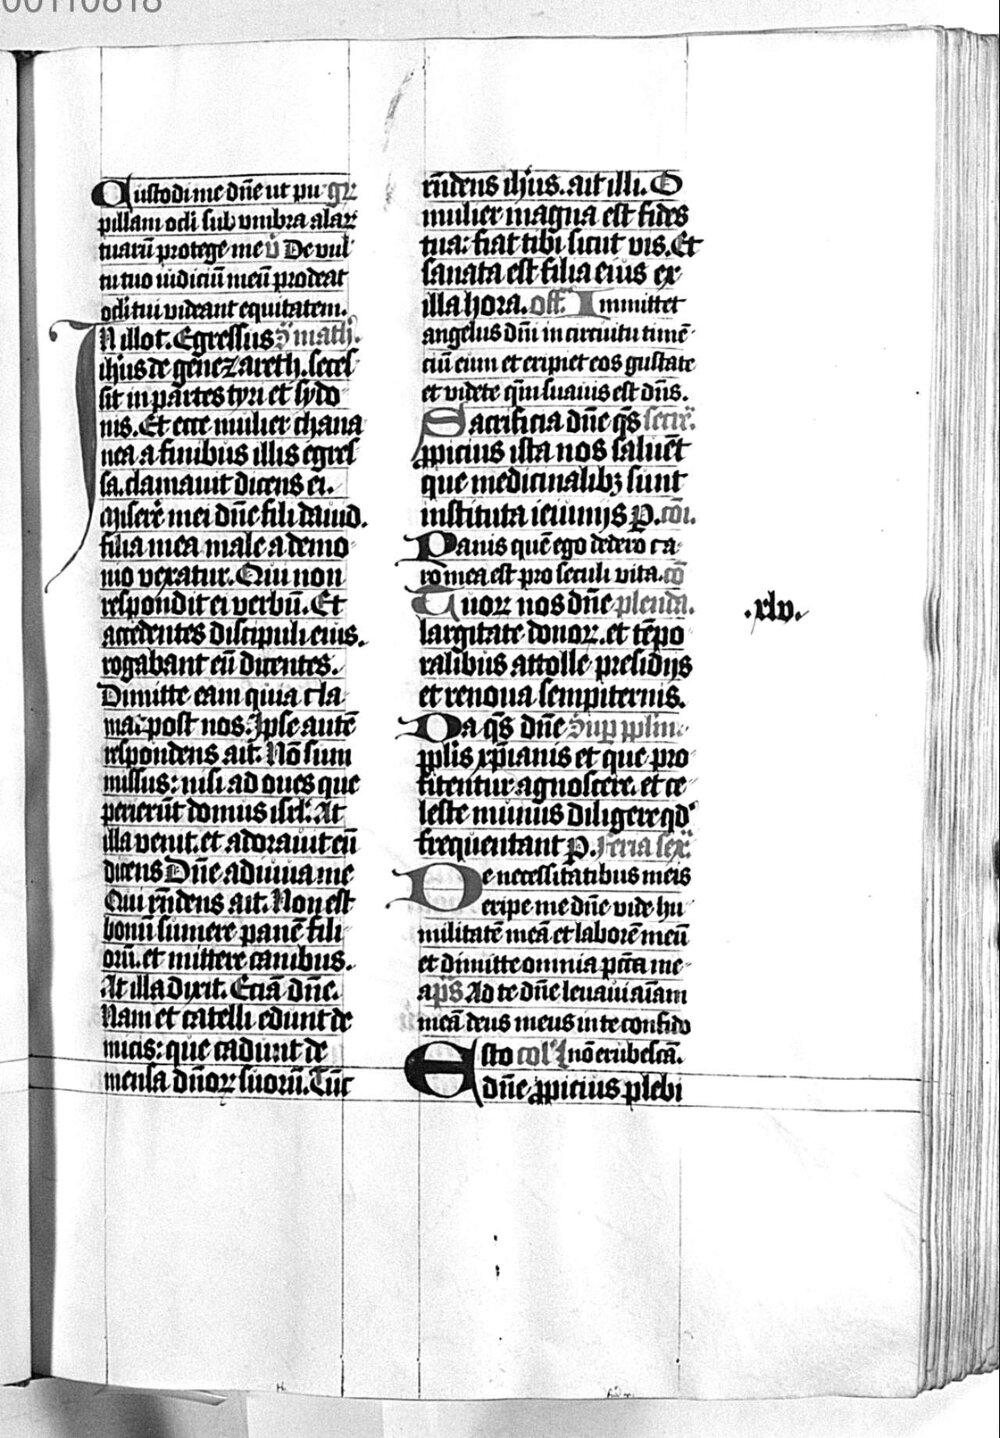 00110818
Custodi me dn̄e ut pu gr̄
pillam oc̄li sub vmbra alaꝝ
tuarū protege me v̄ De vul
tu tuo iudiciū meū prodeat
oc̄li tui videant equitatem.
IN illot. Egressus s̄ math̄.
ih̄us de genezareth. seces
sit in partes tyri et sydo
nis. Et ecce mulier chana
nea a finibus illis egres
sa. clamauit dicens ei.
Miserēr mei dn̄e fili dauid.
filia mea male a demo
nio vexatur. Qui non
respondit ei verbū. Et
accedentes discipuli eius.
rogabant eū dicentes.
Dimitte eam quia cla
mat post nos. Ipse autē
respondens ait. Nō sum
missus: nisi ad oues que
perierūt domus isrl̄. At
illa venit. et adorauit eū
dicens Dn̄e adiuua me
Qui rn̄dens ait. Non est
bonū sumere panē fili
orū. et mittere canibus.
At illa dixit. Eciā dn̄e.
Nam et catelli edunt de
micis: que cadunt de
mensa dn̄oꝝ suorū. Tūc
rn̄dens ih̄us. ait illi. O
mulier magna est fides
tua: fiat tibi sicut vis. Et
sanata est filia eius ex
illa hora. off̄. Immittet
angelus dn̄i in circuitu timē
ciū eum et eripiet eos gustate
et videte qm̄ suauis est dn̄s.
Sacrificia dn̄e qs̄ secre͞.
ꝓpicius ista nos saluēt
que medicinalibꝫ sunt
instituta ieiunijs P. com̄.
Panis quē ego dedero ca
ro mea est pro seculi vita. cō
Tuoꝝ nos dn̄e plenda.
largitate donoꝝ. et tēpo
ralibus attolle presidijs
et renoua sempiternis.
Da qs̄ dn̄e Suꝑ pplm̄.
pp̄lis xp̄ianis et que pro
fitentur agnoscere. et ce
leste munus diligere qd̓
frequentant P. Feria sex͞.
De necessitatibus meis
eripe me dn̄e vide hu
militatē meā et laborē meū
et dimitte omnia pctā me
a ps̄ Ad te dn̄e leuaui aīam
meā deus meus in te confido
Esto col̄ nō erubescā.
dn̄e ꝓpicius plebi
.xlv.